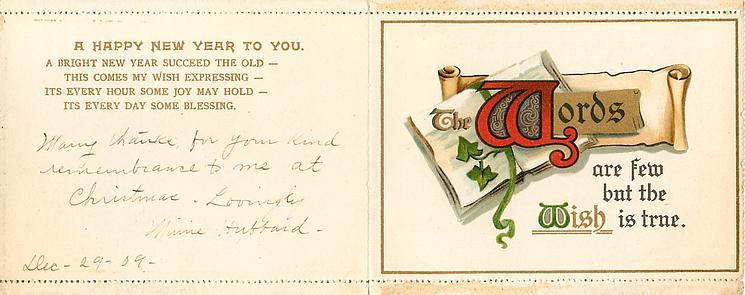 A HAPPY NEW YEAR TO YOU.
A BRIGHT NEW YEAR SUCCEED THE OLD —
THIS COMES MY WISH EXPRESSING —
ITS EVERY HOUR SOME JOY MAY HOLD —
ITS EVERY DAY SOME BLESSING.
Many thanks for your kind
remembrance to me at
Christmas - Lovingly
Minnie Hubbard -
Dec - 29 - 09 -
The Words
are few
but the
Wish is true.